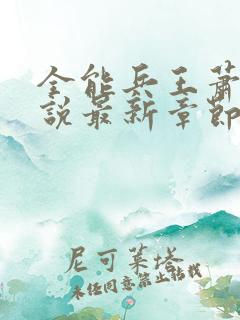 全能兵王萧
说最新章节
尼可莱塔
未经同意禁止转载